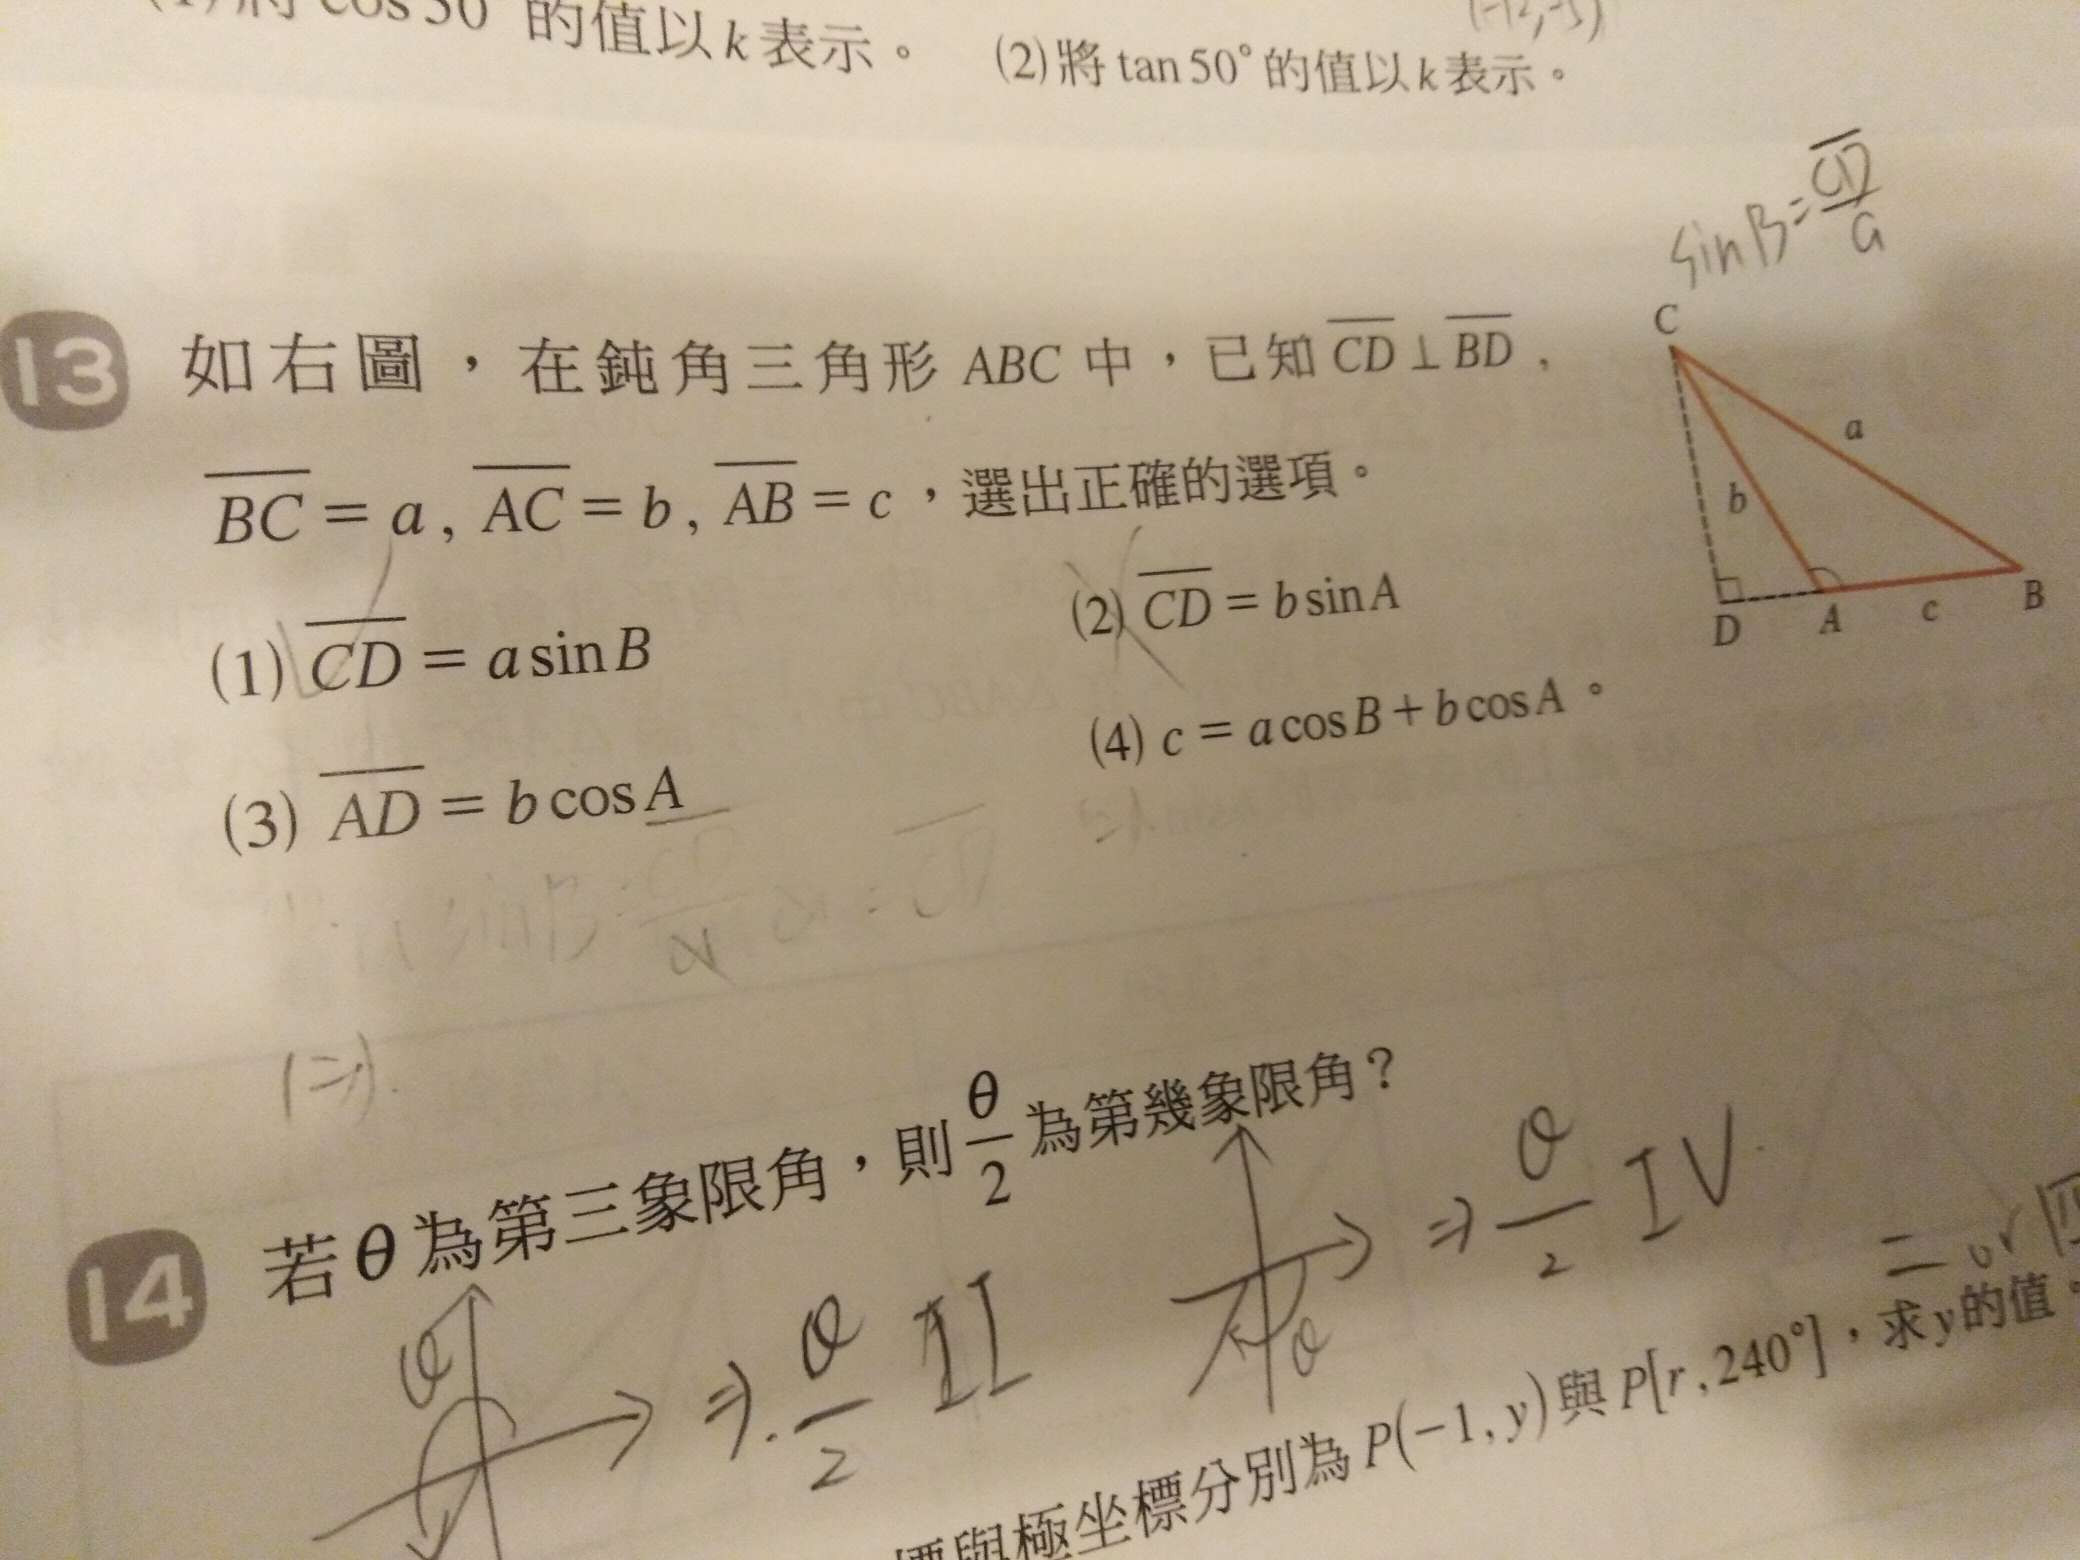 cos50° 的值以k表示。 (2)將tan50°的值以k表示。
sinB=CD/a
13 如右圖，在鈍角三角形ABC中，已知CD⊥BD，
BC=a, AC=b, AB=c，選出正確的選項。
(1) CD=asinB (2) CD=bsinA
(3) AD=bcosA (4) c=acosB+bcosA。
C
a
b
D A c B
14 若θ為第三象限角，則θ/2為第幾象限角？
θ ⇒ θ/2 II
θ ⇒ θ/2 IV
二 or 四
標與極坐標分別為P(−1,y)與P[r,240°]，求y的值。